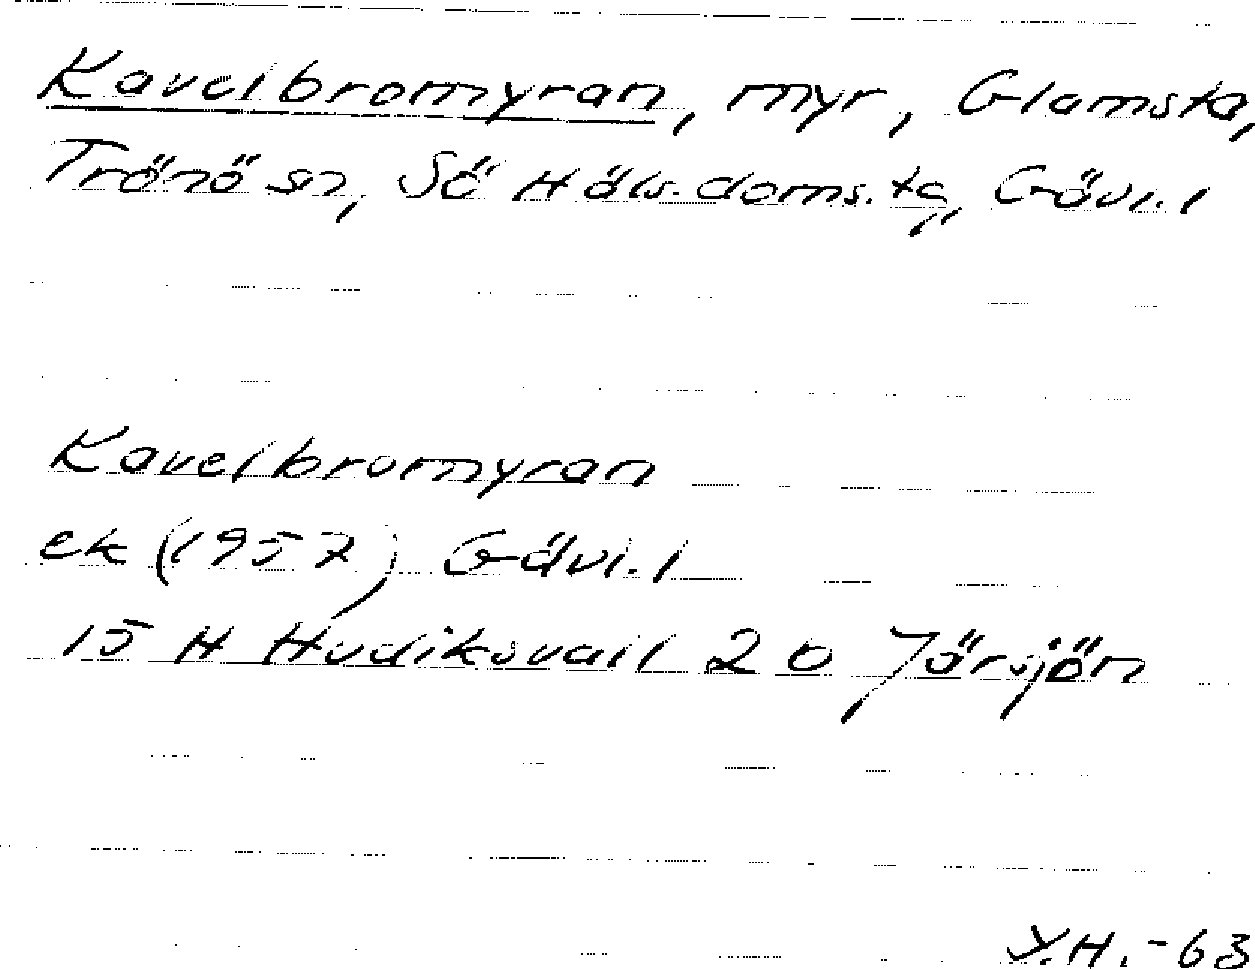 Kavelbromyran, myr, Glamsta,
Trönö sn, Sö Häls. doms. tg, Gävl. l
Kavelbromyran
ek (1957) Gävl. l
15 H Hudiksvall 2 b Järsjön
Y.H. -63